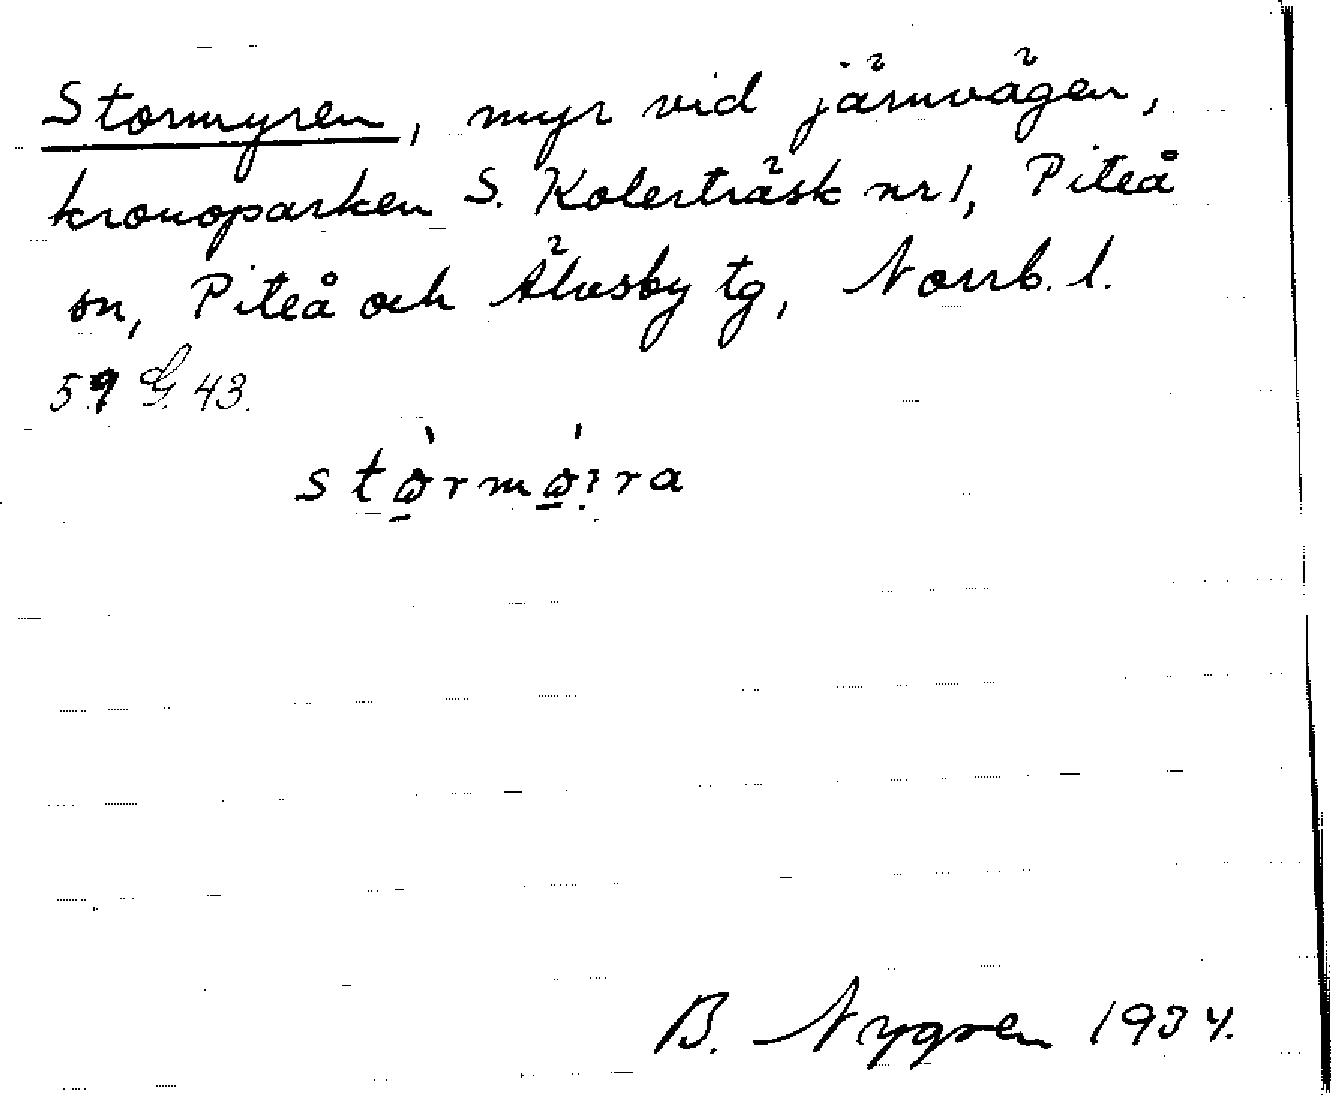 Stormyren, myr vid järnvägen,
kronoparken S. Kolerträsk nr 1, Piteå
sn, Piteå och Älvsby tg, Norrb. l.
59 G. 43.
B. Nygren 1934.